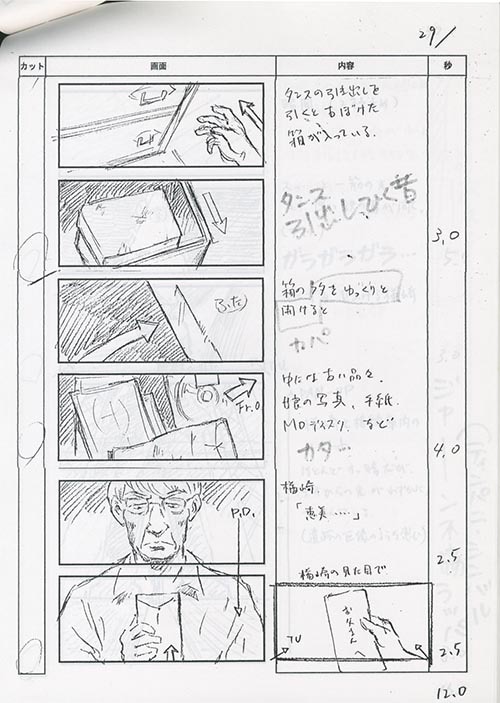 29/
カット 画面 内容 秒
タンスの引き出しを
引くと古ぼけた
箱が入っている。
タンス
引出してひく音
3.0
ガラガラガラ…
箱のフタをゆっくりと
開けると
フタ
カパ
中には古い品々。
娘の写真、手紙
MOディスク、など
Fr.O
カタ…
4.0
楢崎
「恵美……」
P.D.
2.5
楢崎の見た目で
お父さんへ
TU
2.5
12.0